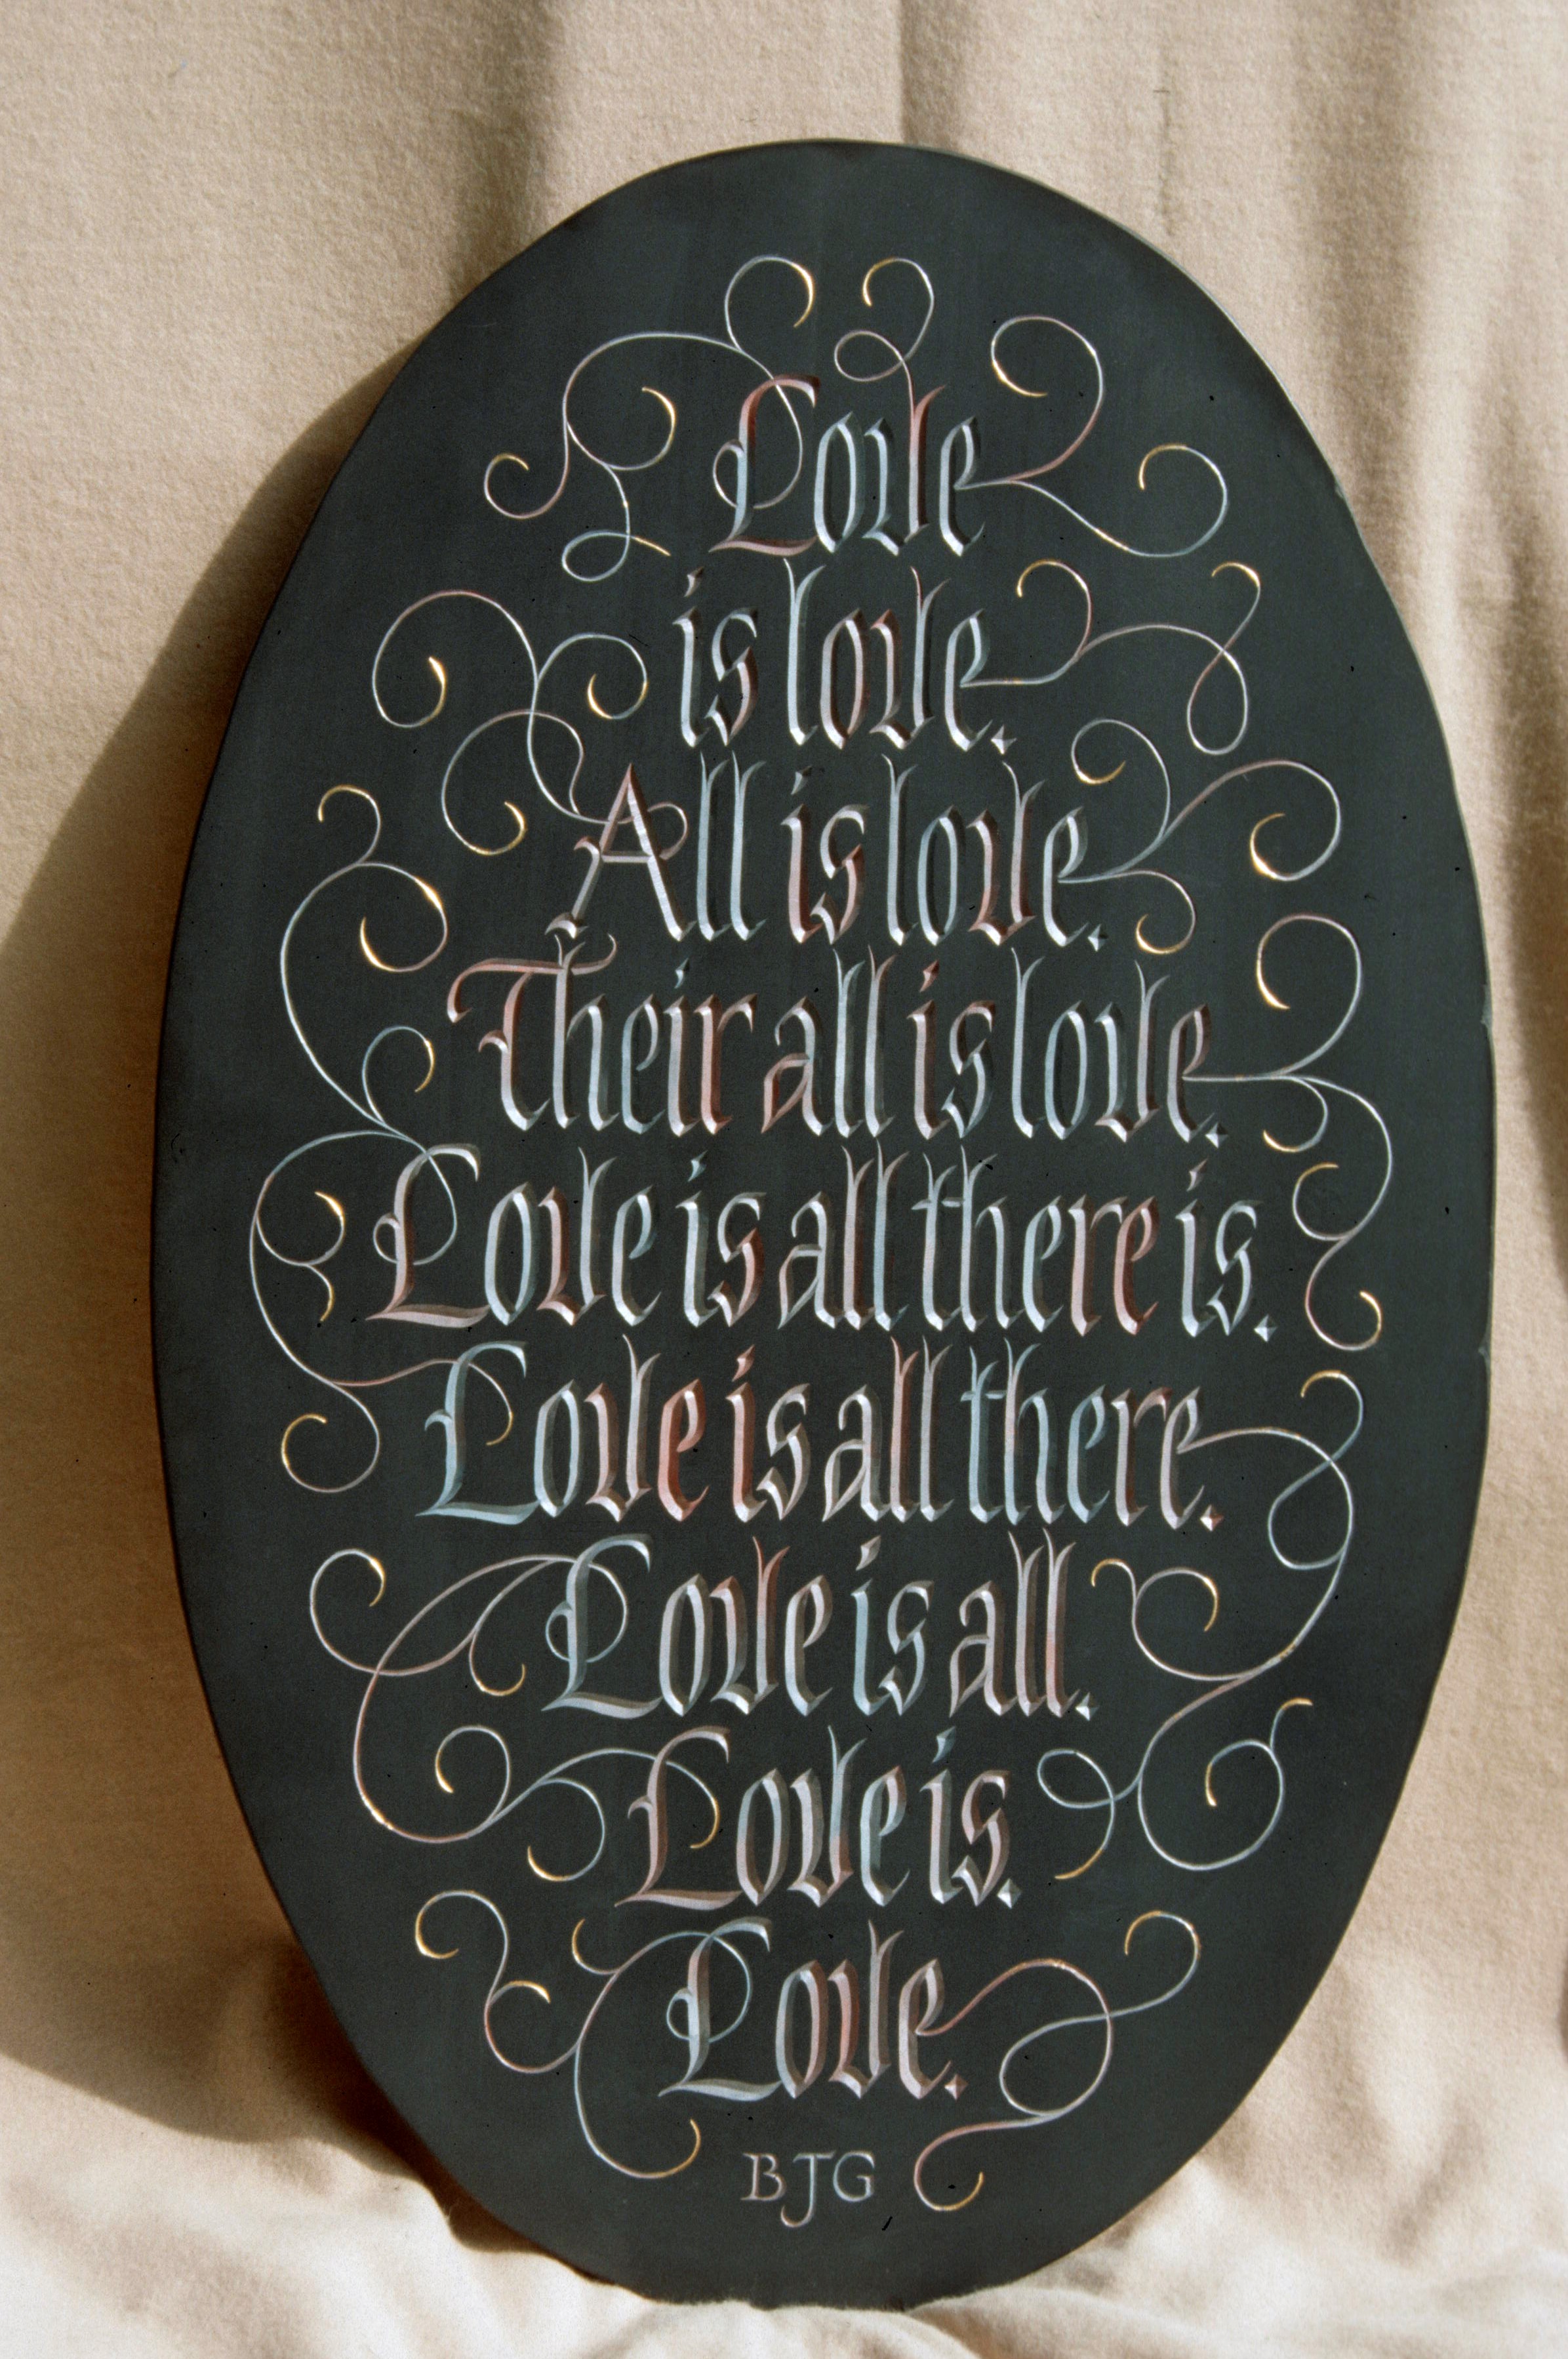 Love
is love.
All is love.
Their all is love.
Love is all there is.
Love is all there.
Love is all.
Love is.
Love.
BJG